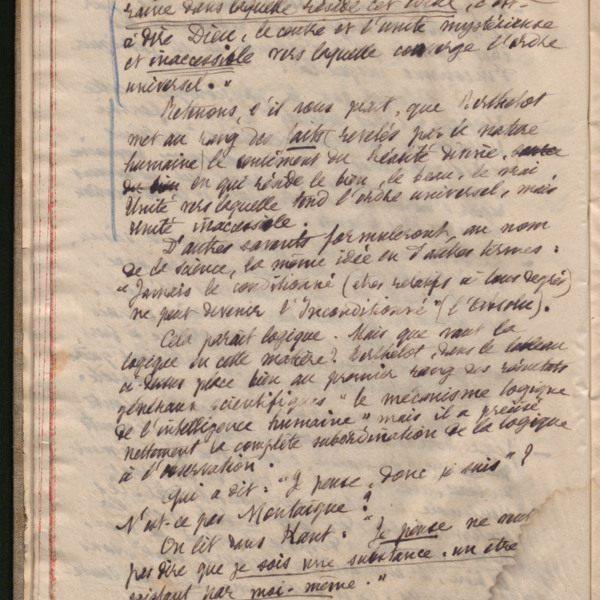 raine dans laquelle réside cet ordre, c'est-
à dire Dieu, le centre et l'unité mystérieuse
et inaccessible vers laquelle converge l'ordre
universel."
Retenons, s'il vous plait, que Berthelot
met au rang des faits (revelés par la nature
humaine) le sentiment du Réalité divine,
du bien en qui réside le bien, le beau, le vrai
Unité vers laquelle tend l'ordre universel, mais
Unité inaccessible.
D'autres savants formuleront, au nom
de la science, la même idée en d'autres termes :
"Jamais le conditionné (êtres relatifs à tous degrés)
ne peut devenir l'Inconditionné" (l'Absolu).
Cela paraît logique. Mais que vaut la
logique en cette matière? Berthelot, dans le tableau
ci-dessus place bien au premier rang des résultats
généraux scientifiques "le mécanisme logique
de l'intelligence humaine" mais il a précisé
nettement la complète subordination de la logique
à l'observation.
Qui a dit : "Je pense, donc je suis"?
N'est-ce pas Montaigne?
On lit dans Kant : "Je pense ne veut
pas dire que je sois une substance, un être
existant par moi-même."